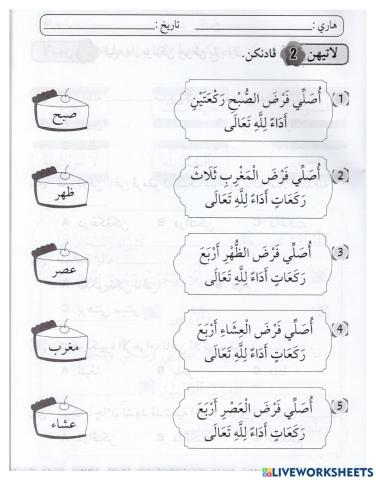 هاري : تاريخ :
لاتيهن 2 ڤادنكن.
(1 أُصَلِّي فَرْضَ الصُّبْحِ رَكْعَتَيْنِ
أَدَاءً لِلَّهِ تَعَالَى
صبح
(2 أُصَلِّي فَرْضَ الْمَغْرِبِ ثَلَاثَ
رَكَعَاتٍ أَدَاءً لِلَّهِ تَعَالَى
ظهر
(3 أُصَلِّي فَرْضَ الظُّهْرِ أَرْبَعَ
رَكَعَاتٍ أَدَاءً لِلَّهِ تَعَالَى
عصر
(4 أُصَلِّي فَرْضَ الْعِشَاءِ أَرْبَعَ
رَكَعَاتٍ أَدَاءً لِلَّهِ تَعَالَى
مغرب
(5 أُصَلِّي فَرْضَ الْعَصْرِ أَرْبَعَ
رَكَعَاتٍ أَدَاءً لِلَّهِ تَعَالَى
عشاء
LIVEWORKSHEETS